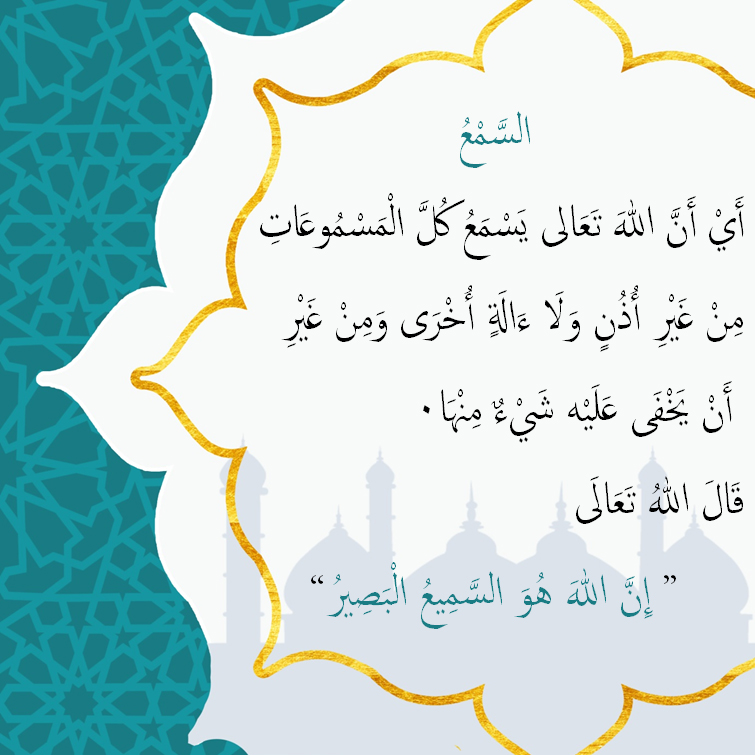 السَّمْعُ
أَيْ أَنَّ اللهَ تَعَالى يَسْمَعُ كُلَّ الْمَسْمُوعَاتِ
مِنْ غَيْرِ أُذُنٍ وَلَا ءَالَةٍ أُخْرَى وَمِنْ غَيْرِ
أَنْ يَخْفَى عَلَيْه شَيْءٌ مِنْهَا.
قَالَ اللهُ تَعَالَى
” إِنَّ اللهَ هُوَ السَّمِيعُ الْبَصِيرُ “